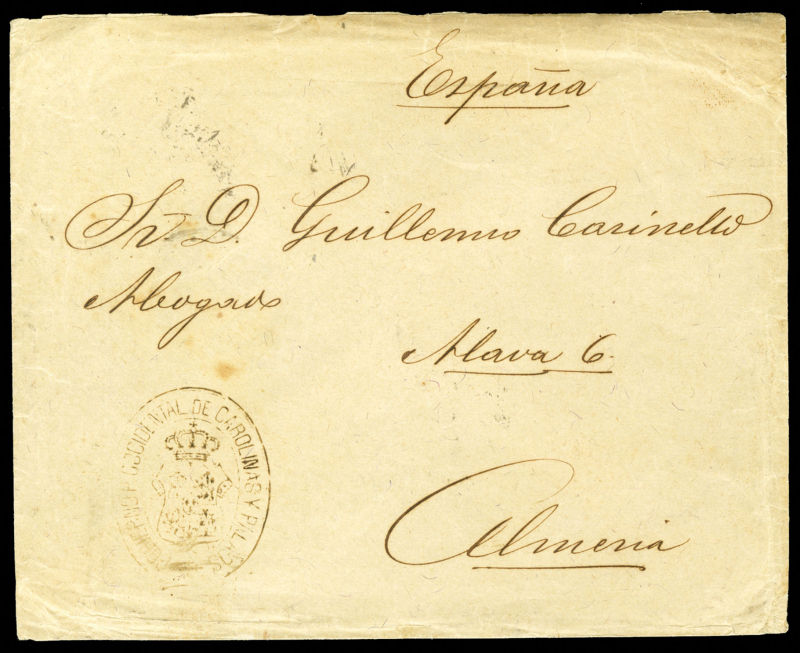 España
Sr. D. Guillermo Casinello
Abogado
Alava 6.
Almeria
GOBIERNO OCCIDENTAL DE CAROLINAS Y PALAOS